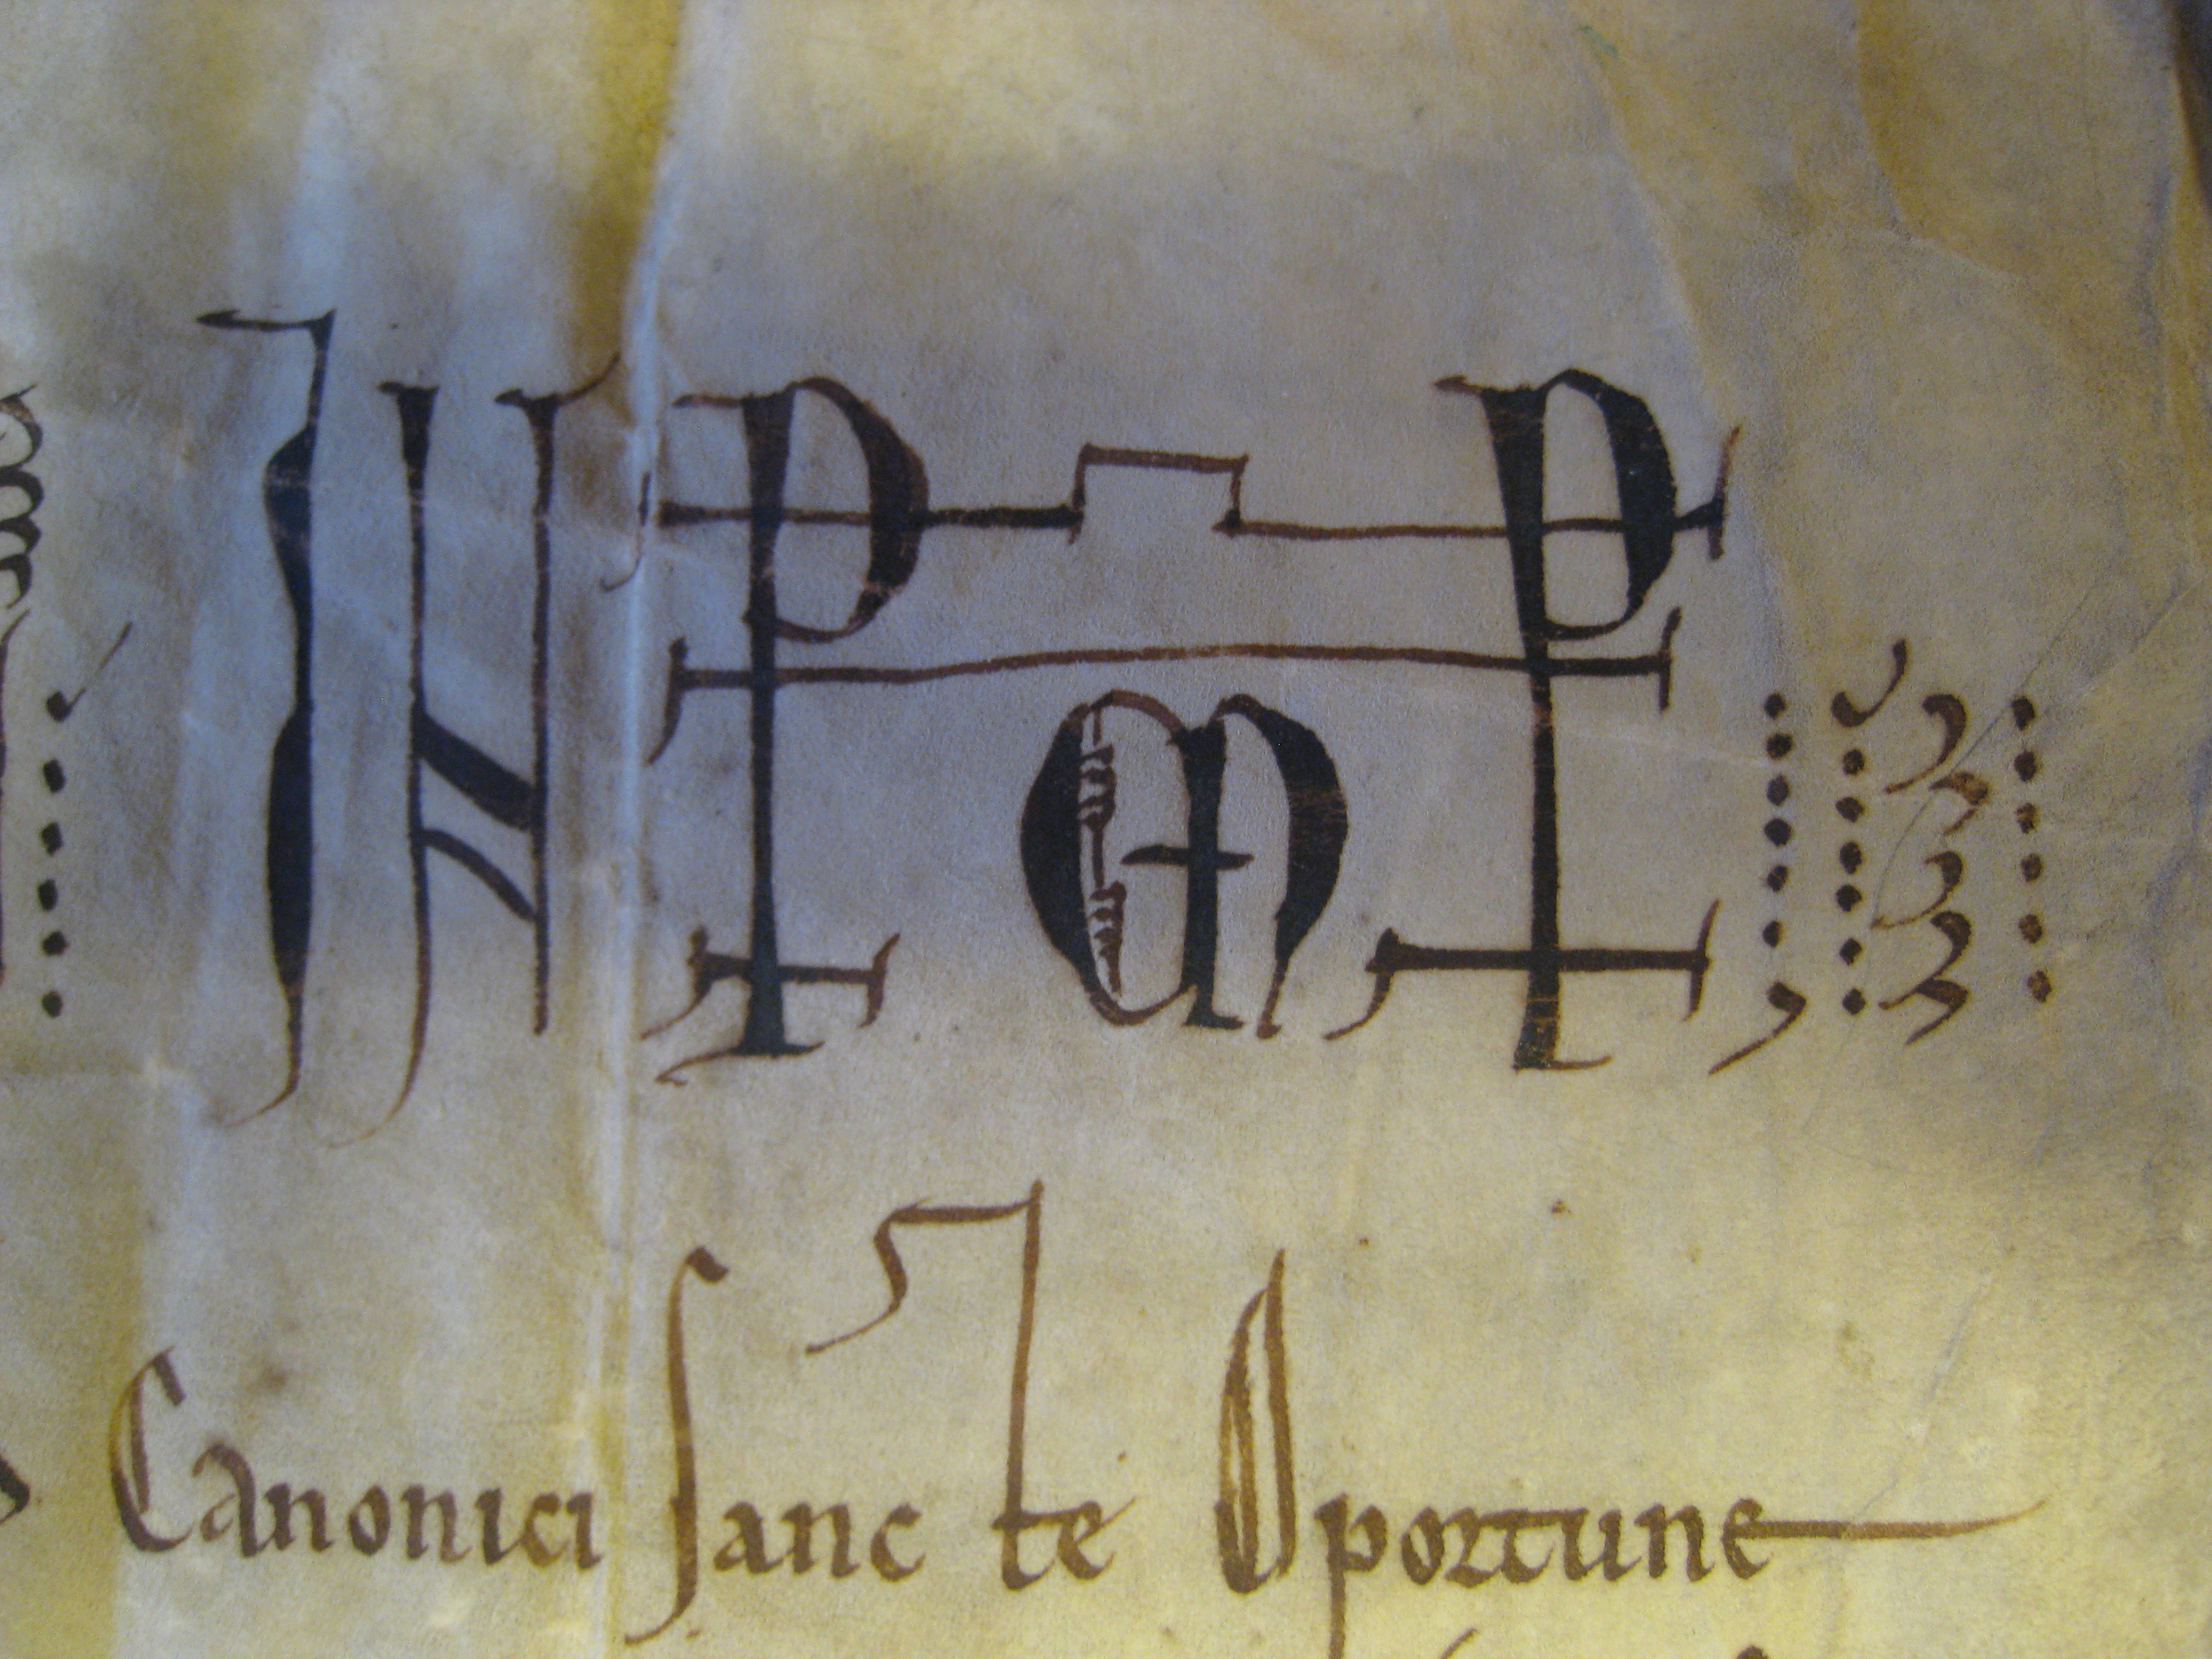 IN PP M
Canonici Sancte Oportune